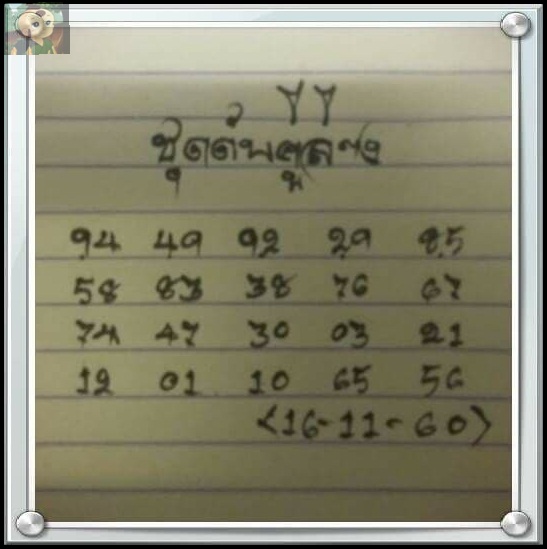 ชุด
94 49 92 29 85
58 83 38 76 67
74 47 30 03 21
12 01 10 65 56
<16-11-60>